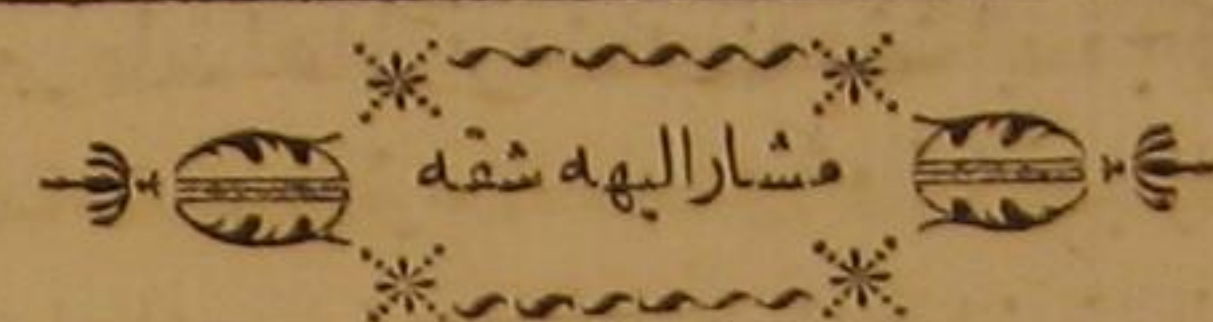 مشار اليهه شقه